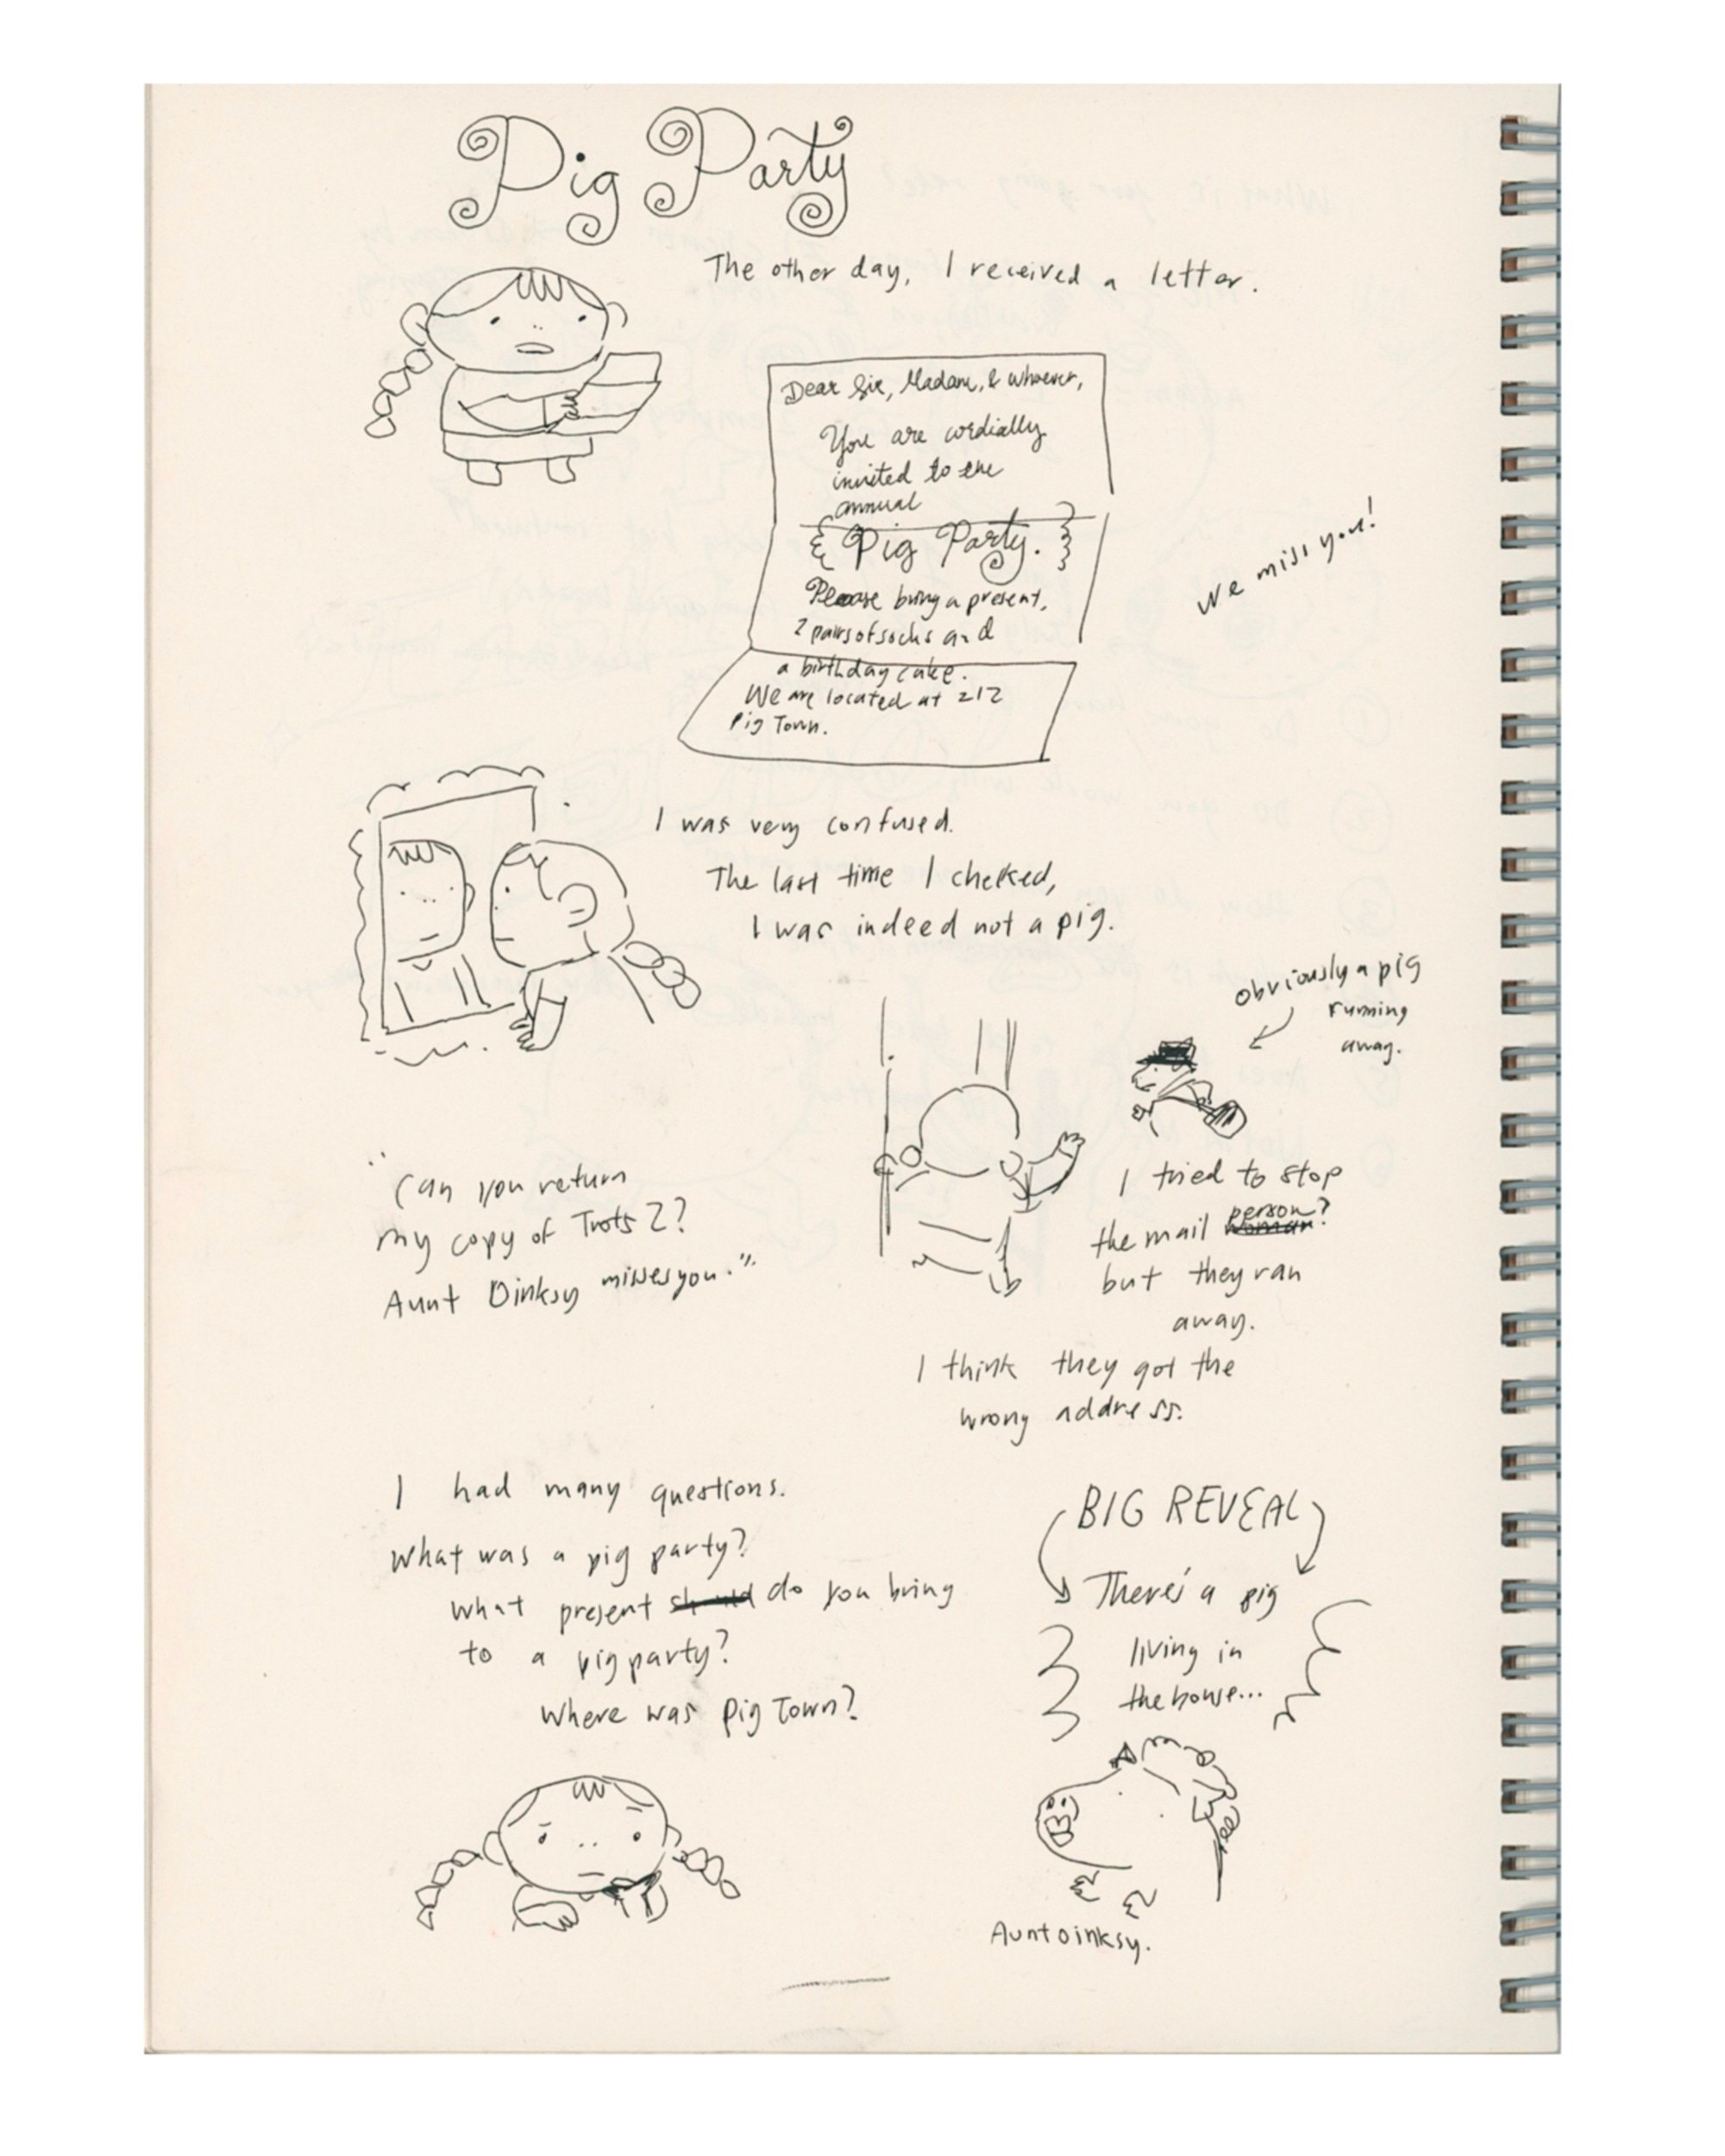 Pig Party
The other day, I received a letter.
Dear Sir, Madam, & whoever,
You are cordially
invited to the
annual
Pig Party.
Please bring a present,
2 pairs of socks and
a birthday cake.
We are located at 212
Pig Town.
We miss you!
I was very confused.
The last time I checked,
I was indeed not a pig.
obviously a pig
running
away.
I tried to stop
the mail person?
but they ran
away.
I think they got the
wrong address.
"Can you return
my copy of Trots 2?
Aunt Oinksy misses you."
I had many questions.
What was a pig party?
What present should do you bring
to a pig party?
Where was Pig Town?
BIG REVEAL
There's a pig
living in
the house...
Aunt oinksy.